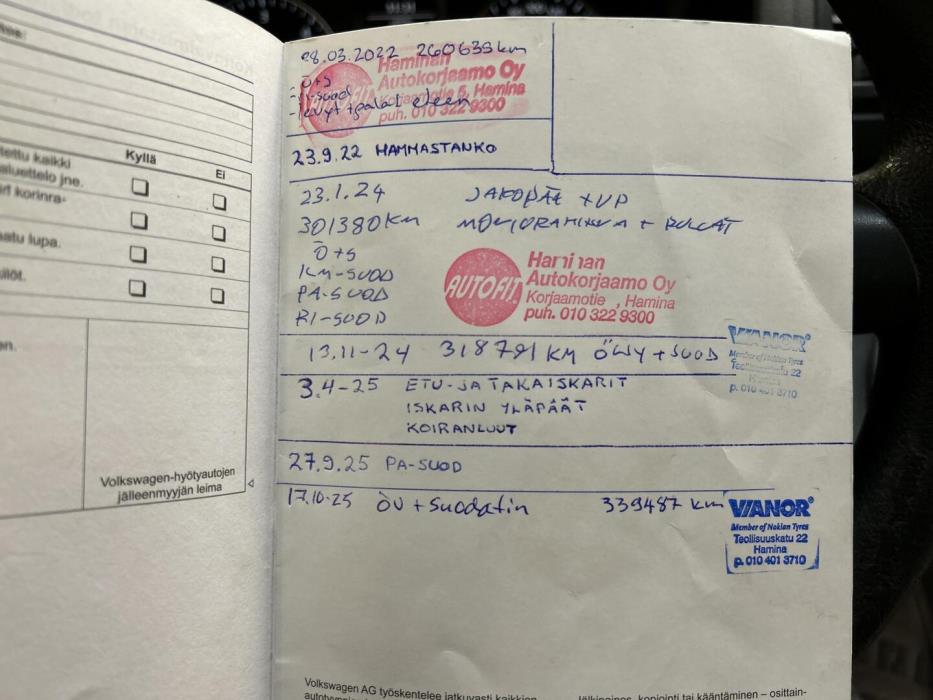 Kyllä
Ei
ettu kaikki
aluettelo jne.
korinra-
aatu lupa.
Volkswagen-hyötyautojen
jälleenmyyjän leima
28.03.2022 260639 km
Haminan
Autokorjaamo Oy
Korjaamotie 5, Hamina
puh. 010 322 9300
Ö+S
eteen
23.9.22 HAMMASTANKO
23.1.24 JAKOPÄÄ + VP
301380 KM MONIURAHIHNA + RULLAT
Ö+S
KM-SUOD
PA-SUOD
RI-SUOD
AUTOFIT
Autokorjaamo Oy
Korjaamotie , Hamina
puh. 010 322 9300
13.11-24 318791 KM ÖLJY + SUOD
VIANOR
Member of Nokian Tyres
Teollisuuskatu 22
Hamina
p. 010 401 3710
3.4-25 ETU-JA TAKAISKARIT
ISKARIN YLÄPÄÄT
KOIRANLUUT
27.9.25 PA-SUOD
17.10.25 ÖV + Suodatin 339487 km
VIANOR
Member of Nokian Tyres
Teollisuuskatu 22
Hamina
p. 010 401 3710
Volkswagen AG työskentelee jatkuvasti kaikkien
kopiointi tai kääntäminen – osittain-